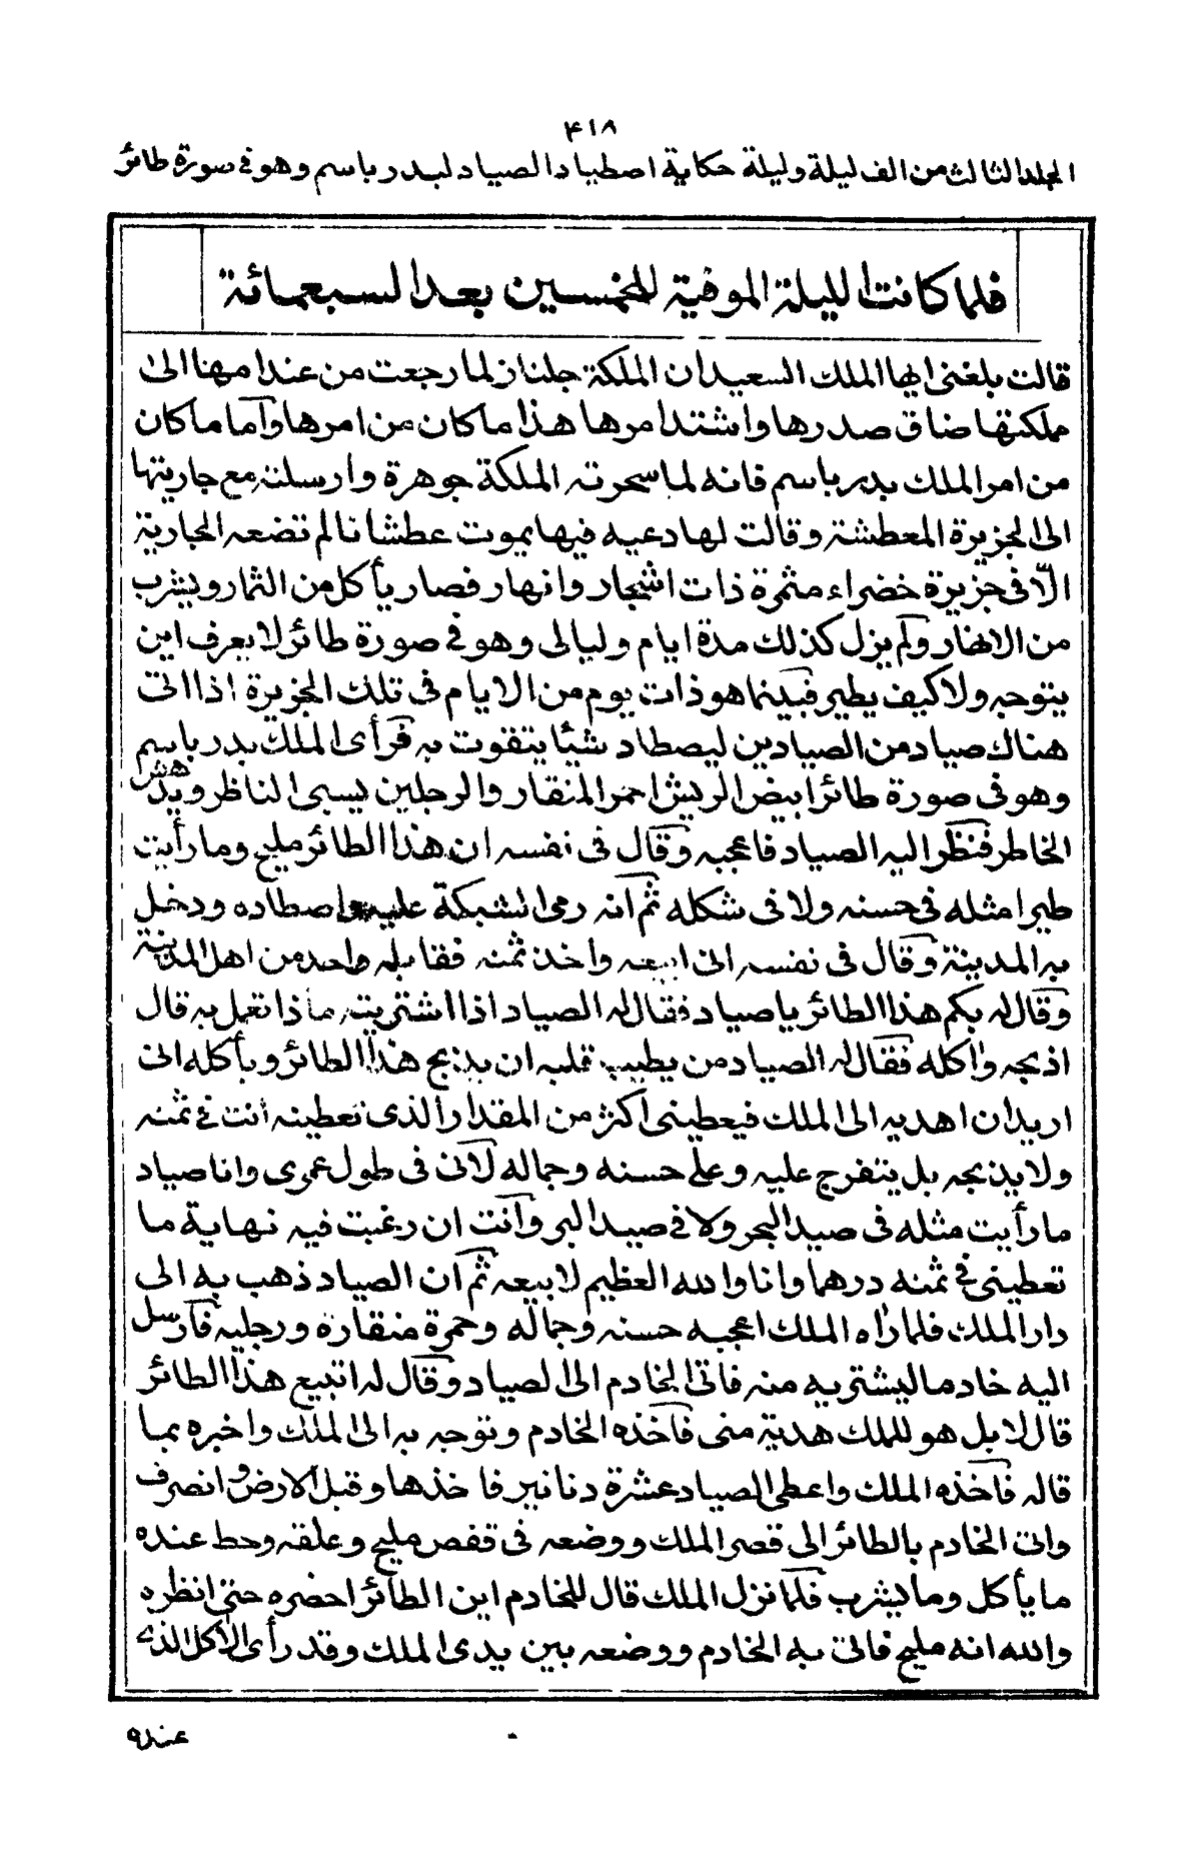 ٤١٨
المجلد الثالث من الف ليلة وليلة حكاية اصطياد الصياد لبدر باسم وهو في صورة طائر
فلما كانت الليلة الموفية للخمسين بعد السبعمائة
قالت بلغني ايها الملك السعيد ان الملكة جلناز لما رجعت من عند امها الى
مملكتها ضاق صدرها واشتد امرها هذا ما كان من امرها وأما ما كان
من امر الملك بدر باسم فانه لما سحرته الملكة جوهرة وارسلته مع جاريتها
الى الجزيرة المعطشة وقالت لها دعيه فيها يموت عطشانا لم تضعه الجارية
الّا في جزيرة خضراء مثمرة ذات اشجار وانهار فصار يأكل من الثمار ويشرب
من الانهار ولم يزل كذلك مدة ايام وليالى وهو في صورة طائر لا يعرف اين
يتوجه ولا كيف يطير فبينما هو ذات يوم من الايام فى تلك الجزيرة اذا اتى
هناك صياد من الصيادين ليصطاد شيئا يتقوت به فرأى الملك بدر باسم
وهو فى صورة طائر ابيض الريش احمر المنقار والرجلين يسبى الناظر ويدهش
الخاطر فنظر اليه الصياد فاعجبه وقال فى نفسه ان هذا الطائر مليح وما رأيت
طيرا مثله فى حسنه ولا فى شكله ثم أنه رمى الشبكة عليه واصطاده ودخل
به المدينة وقال فى نفسه انى ابيعه واخذ ثمنه فقابله واحد من اهل المدينة
وقال له بكم هذا الطائر يا صياد فقال له الصياد اذا اشتريته ماذا تعمل به قال
اذبحه وٰاكله فقال له الصياد من يطيب قلبه ان يذبح هذا الطائر ويأكله انى
اريد ان اهديه الى الملك فيعطينى اكثر من المقدار الذى تعطينه انت في ثمنه
ولا يذبحه بل يتفرج عليه وعلى حسنه وجماله لانى فى طول عمرى وانا صياد
ما رأيت مثله فى صيد البحر ولا في صيد البر وأنت ان رغبت فيه نهاية ما
تعطينى في ثمنه درهما وانا والله العظيم لا ابيعه ثم أن الصياد ذهب به الى
دار الملك فلما رٰاه الملك اعجبه حسنه وجماله وحمرة منقاره ورجليه فأرسل
اليه خادما ليشتريه منه فاتى الخادم الى الصياد وقال له اتبيع هذا الطائر
قال لا بل هو للملك هدية منى فأخذه الخادم وتوجه به الى الملك واخبره بما
قاله فأخذه الملك واعطى الصياد عشرة دنانير فاخذها وقبل الارض وانصرف
واتى الخادم بالطائر الى قصر الملك ووضعه فى قفص مليح وعلقه وحط عنده
ما يأكل وما يشرب فلما نزل الملك قال للخادم اين الطائر احضره حتى انظره
والله انه مليح فاتى به الخادم ووضعه بين يدى الملك وقد رأى الاكل الذى
عنده